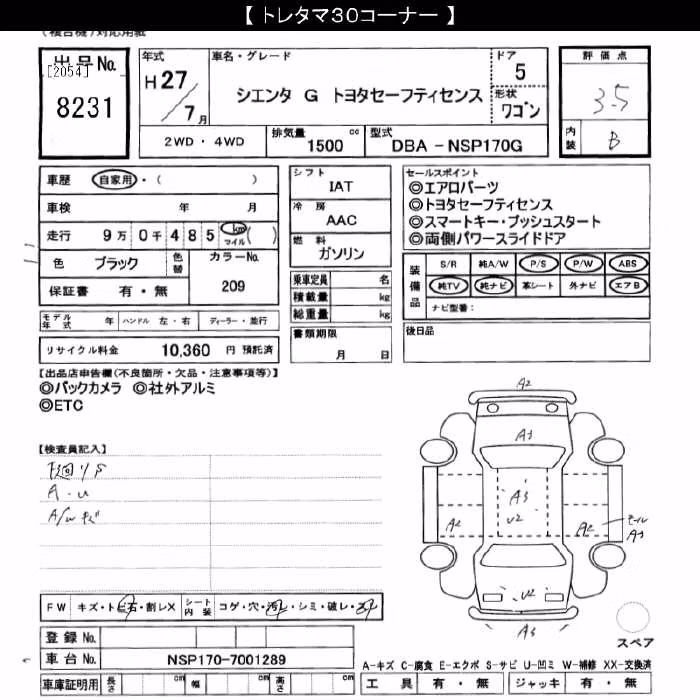 【 トレタマ30コーナー 】
(複合機)対応用紙
出品No.
[2054]
8231
年式 車名・グレード ドア 評価点
H27/7月 シエンタ G トヨタセーフティセンス 5 3.5
形状 ワゴン
2WD・4WD 排気量 1500 cc 型式 DBA-NSP170G 内装 B
車歴 自家用・( )
車検 年 月
走行 9万0千485 km マイル ( )
色 ブラック 色替 カラーNo. 209
保証書 有・無
モデル年式 年 ハンドル 左・右 ディーラー・並行
リサイクル料金 10,360 円 預託済
シフト IAT
冷房 AAC
燃料 ガソリン
乗車定員 名
積載量 kg
総重量 kg
書類期限
月 日
セールスポイント
◎エアロパーツ
◎トヨタセーフティセンス
◎スマートキー・プッシュスタート
◎両側パワースライドドア
装備品 S/R 純A/W P/S P/W ABS
純TV 純ナビ 革シート 外ナビ エアB
ナビ型番:
後日品
【出品店申告欄(不良箇所・欠品・注意事項等)】
◎バックカメラ ◎社外アルミ
◎ETC
【検査員記入】
下廻りS
A・U
A/wキズ
A2
A3
A3
U2
A2
A2
モール
A3
U2
A3
スペア
FW キズ・トビ石・割レX シート内装 コゲ・穴・汚レ・シミ・破レ・スレ
登録No.
車台No. NSP170-7001289
車庫証明用 長さ cm 幅 cm 高さ cm
A-キズ C-腐食 E-エクボ S-サビ U-凹ミ W-補修 XX-交換済
工具 有・無 ジャッキ 有・無